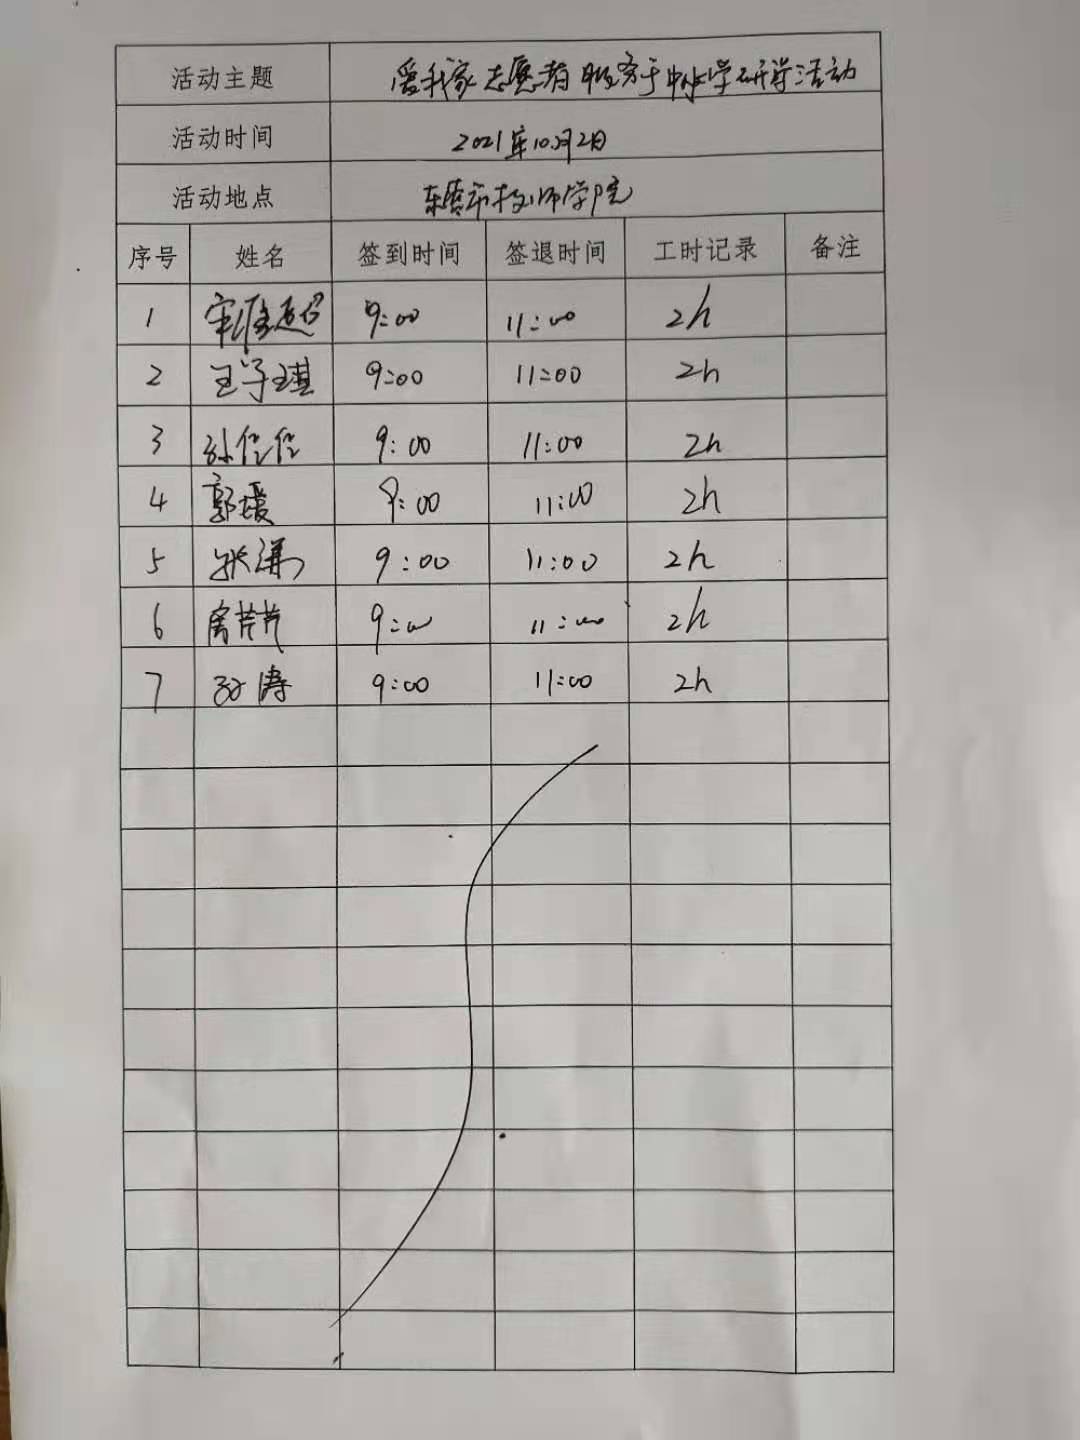 活动主题 爱我家志愿者服务于中小学研学活动
活动时间 2021年10月2日
活动地点 东营市技师学院
序号 姓名 签到时间 签退时间 工时记录 备注
1 9:00 11:00 2h
2 王子琪 9:00 11:00 2h
3 孙佳佳 9:00 11:00 2h
4 郭媛 9:00 11:00 2h
5 张潇 9:00 11:00 2h
6 房芹芹 9:00 11:00 2h
7 孙涛 9:00 11:00 2h